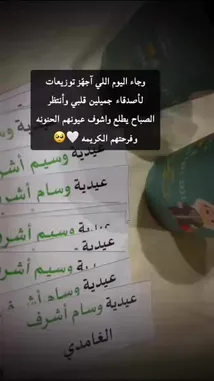 وجاء اليوم اللي آجهّز توزيعات
لأصدقاء جميلين قلبي وأنتظر
الصباح يطلع واشوف عيونهم الحنونه
وفرحتهم الكريمه 🤍🥺
عيدية وسيم أشرف
عيدية وسام أشرف
عيدية وسيم أشرف
عيدية وسام أشرف
عيدية وسيم أشر
عيدية وسام أش
عيدية وسام أشرف
الغامدي